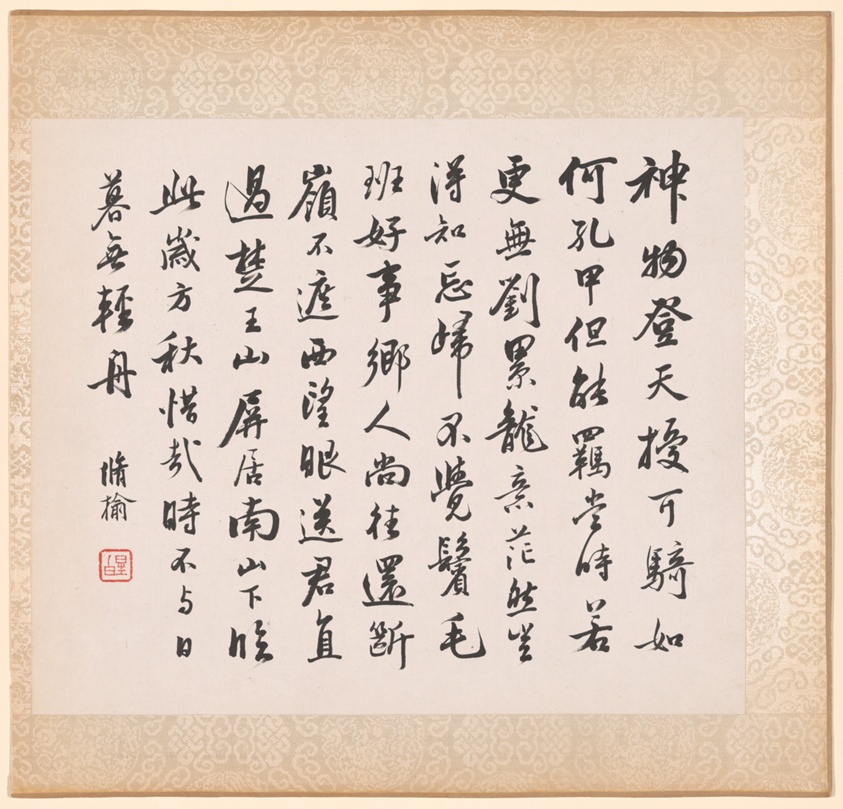 神物登天授可騎如
何孔甲但能羈當時若
更無劉累龍意茫然豈
得知忘歸不覺鬢毛
班好事鄉人尚往還斷
嶺不遮西望眼送君直
過楚王山屏居南山下臨
此歲方秋惜哉時不与日
暮無輕舟